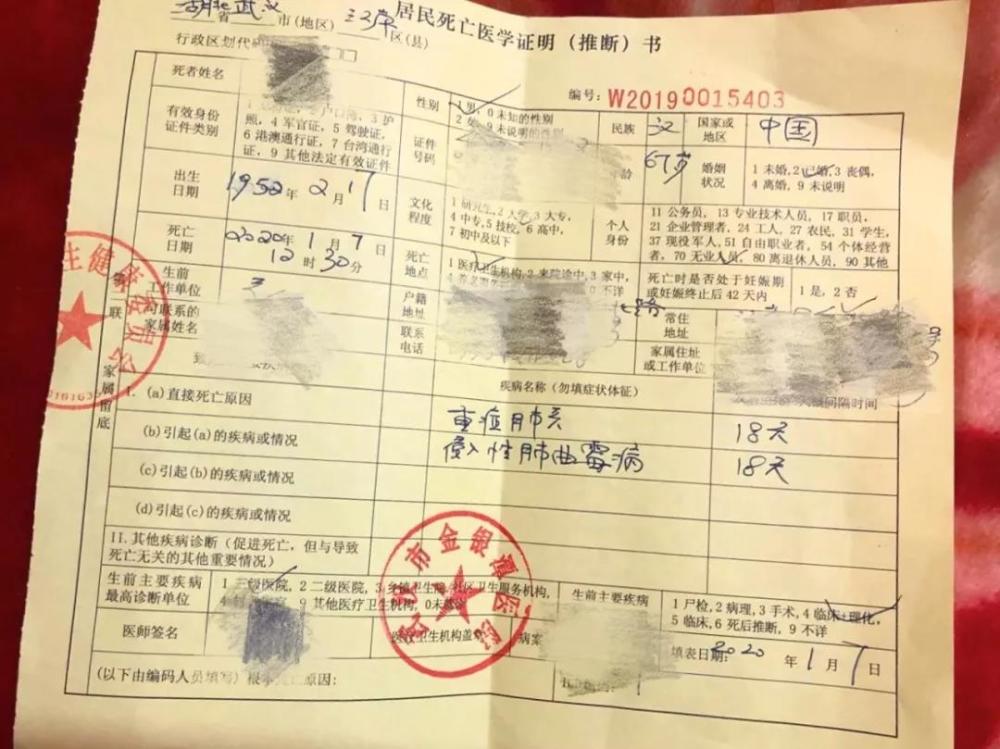 湖北省武汉市(地区)江岸区(县)
居民死亡医学证明(推断)书
行政区划代码
编号:W20190015403
死者姓名
性别
1 男,0 未知的性别
2 女,9 未说明的性别
民族
汉
国家或地区
中国
有效身份证件类别
照,4 军官证,5 驾驶证,
6 港澳通行证,7 台湾通行
证,9 其他法定有效证件
证件号码
年龄
67岁
婚姻状况
1 未婚,2 已婚,3 丧偶,
4 离婚,9 未说明
出生日期
1952年2月17日
文化程度
1 研究生,2 大学,3 大专,
4 中专,5 技校,6 高中,
7 初中及以下
个人身份
11 公务员,13 专业技术人员,17 职员,
21 企业管理者,24 工人,27 农民,31 学生,
37 现役军人,51 自由职业者,54 个体经营
者,70 无业人员,80 离退休人员,90 其他
死亡日期
2020年1月7日
12时30分
死亡地点
1 医疗卫生机构,2 来院途中,3 家中,
不详
死亡时是否处于妊娠期
或妊娠终止后 42 天内
1 是,2 否
生前工作单位
户籍地址
常住地址
可联系的家属姓名
联系电话
家属住址或工作单位
疾病名称(勿填症状体征)
间隔时间
I.(a)直接死亡原因
重症肺炎
18天
(b)引起(a)的疾病或情况
侵入性肺曲霉病
18天
(c)引起(b)的疾病或情况
(d)引起(c)的疾病或情况
II.其他疾病诊断(促进死亡,但与导致
死亡无关的其他重要情况)
生前主要疾病
最高诊断单位
1 三级医院,2 二级医院,3 乡镇卫生院/社区卫生服务机构,
9 其他医疗卫生机构,0未就诊
生前主要疾病
1 尸检,2 病理,3 手术,4 临床+理化,
5 临床,6 死后推断,9 不详
医师签名
医疗卫生机构盖章
病案
填表日期:2020年1月7日
(以下由编码人员填写)根本死亡原因:
联
家属留底
市金银潭医院